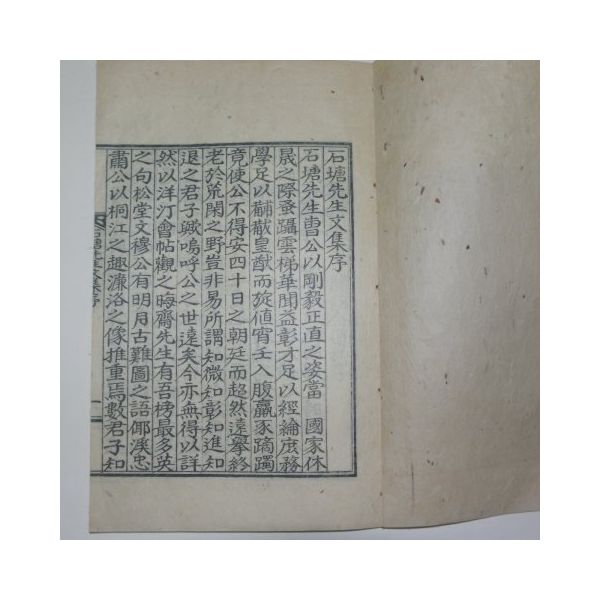 石塘先生文集序
石塘先生曺公以剛毅正直之姿當 國家休
晟之際蚤躡雲梯華聞益彰才足以經綸庶務
學足以黼黻皇猷而旋値宵壬入腹羸豕蹢躅
竟使公不得安四十日之朝廷而超然遠擧終
老於荒閑之野豈非易所謂知微知彰知進知
退之君子歟嗚呼公之世遠矣今亦無得以詳
然以洋汀會帖觀之晦齋先生有吾榜最多英
之句松堂文穆公有明月古難圖之語郰溪忠
肅公以桐江之趣濂洛之像推重焉數君子知
石塘先生文集序